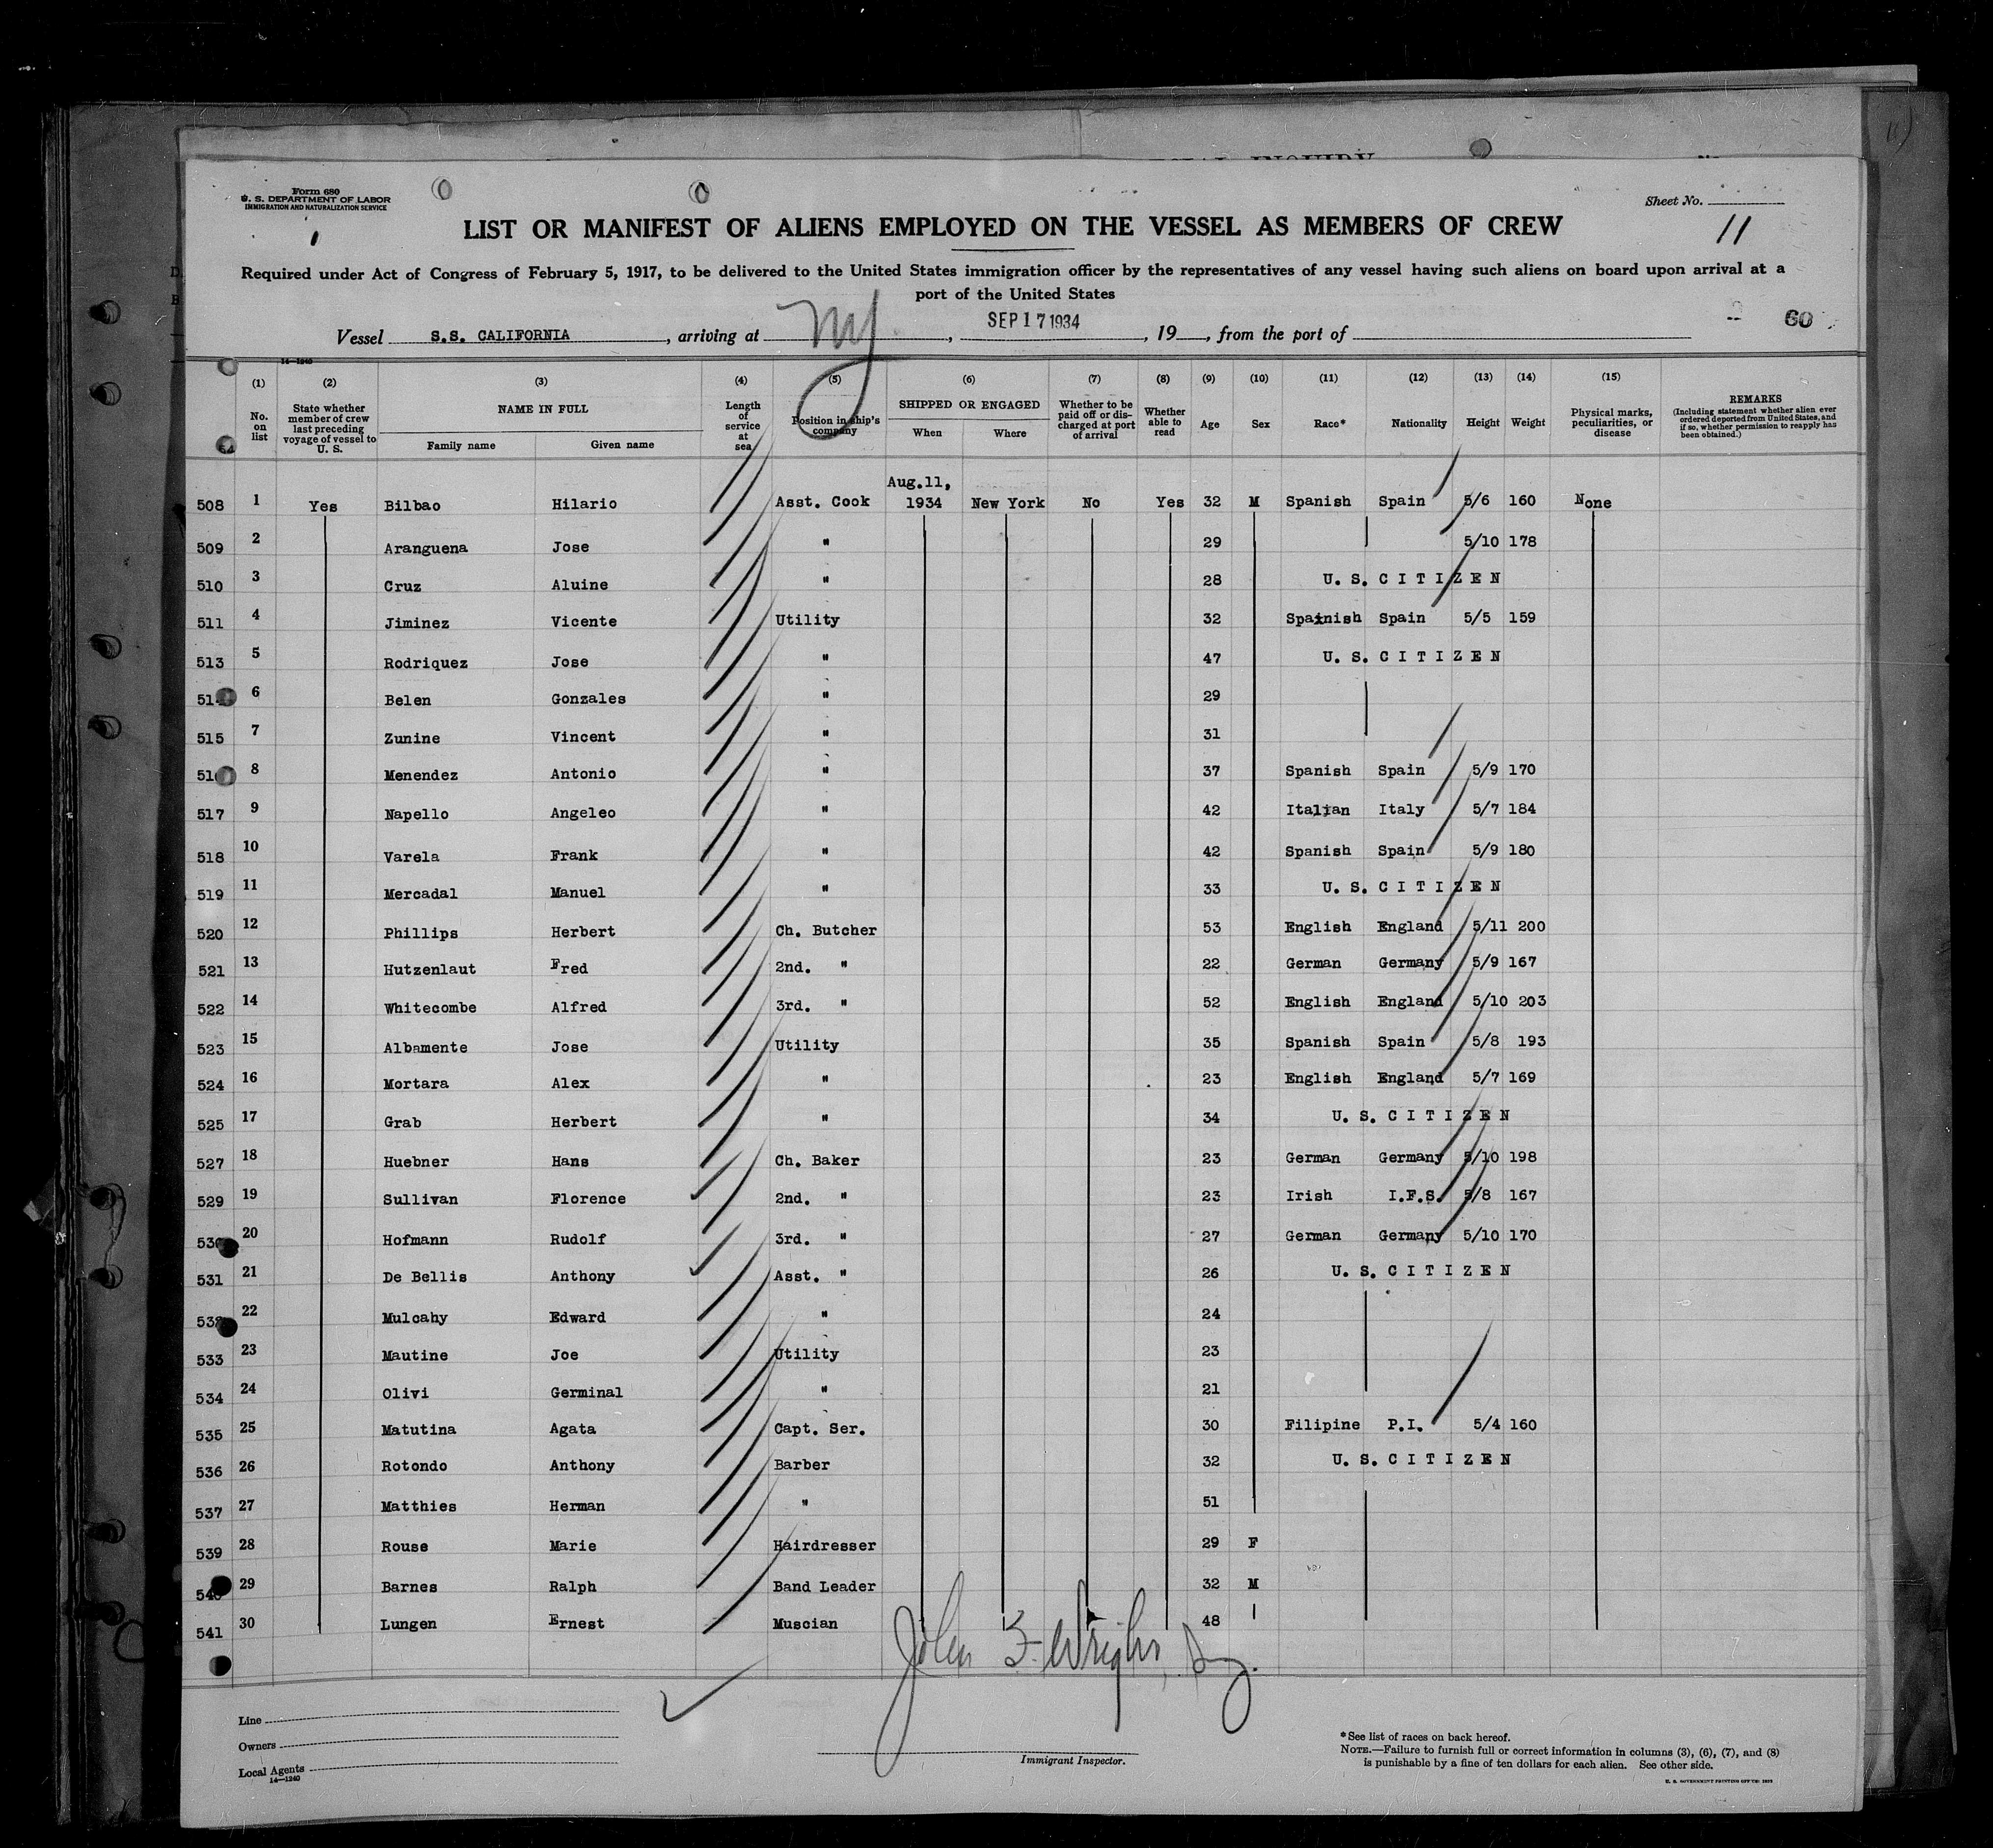 Form 680
U. S. DEPARTMENT OF LABOR
IMMIGRATION AND NATURALIZATION SERVICE
Sheet No.
11
LIST OR MANIFEST OF ALIENS EMPLOYED ON THE VESSEL AS MEMBERS OF CREW
Required under Act of Congress of February 5, 1917, to be delivered to the United States immigration officer by the representatives of any vessel having such aliens on board upon arrival at a
port of the United States
60
Vessel S.S. CALIFORNIA, arriving at NY, SEP 17 1934, 19, from the port of
14—1240
(1) (2) (3) (4) (5) (6) (7) (8) (9) (10) (11) (12) (13) (14) (15)
No. on list State whether member of crew last preceding voyage of vessel to U. S. NAME IN FULL Family name Given name Length of service at sea Position in ship's company SHIPPED OR ENGAGED When Where Whether to be paid off or discharged at port of arrival Whether able to read Age Sex Race* Nationality Height Weight Physical marks, peculiarities, or disease REMARKS (Including statement whether alien ever ordered deported from United States, and if so, whether permission to reapply has been obtained.)
508 1 Yes Bilbao Hilario Asst. Cook Aug.11, 1934 New York No Yes 32 M Spanish Spain 5/6 160 None
509 2 Aranguena Jose " 29 5/10 178
510 3 Cruz Aluine " 28 U. S. C I T I Z E N
511 4 Jiminez Vicente Utility 32 Spainish Spain 5/5 159
513 5 Rodriquez Jose " 47 U. S. C I T I Z E N
6 Belen Gonzales " 29
515 7 Zunine Vincent " 31
8 Menendez Antonio " 37 Spanish Spain 5/9 170
517 9 Napello Angeleo " 42 Italian Italy 5/7 184
518 10 Varela Frank " 42 Spanish Spain 5/9 180
519 11 Mercadal Manuel " 33 U. S. C I T I Z E N
520 12 Phillips Herbert Ch. Butcher 53 English England 5/11 200
521 13 Hutzenlaut Fred 2nd. " 22 German Germany 5/9 167
522 14 Whitecombe Alfred 3rd. " 52 English England 5/10 203
523 15 Albamente Jose Utility 35 Spanish Spain 5/8 193
524 16 Mortara Alex " 23 English England 5/7 169
525 17 Grab Herbert " 34 U. S. C I T I Z E N
527 18 Huebner Hans Ch. Baker 23 German Germany 5/10 198
529 19 Sullivan Florence 2nd. " 23 Irish I.F.S. 5/8 167
20 Hofmann Rudolf 3rd. " 27 German Germany 5/10 170
531 21 De Bellis Anthony Asst. " 26 U. S. C I T I Z E N
22 Mulcahy Edward " 24
533 23 Mautine Joe Utility 23
534 24 Olivi Germinal " 21
535 25 Matutina Agata Capt. Ser. 30 Filipine P.I. 5/4 160
536 26 Rotondo Anthony Barber 32 U. S. C I T I Z E N
537 27 Matthies Herman " 51
539 28 Rouse Marie Hairdresser 29 F
29 Barnes Ralph Band Leader 32 M
541 30 Lungen Ernest Muscian 48
Line
Owners
Local Agents
14—1240
Immigrant Inspector.
*See list of races on back hereof.
NOTE.—Failure to furnish full or correct information in columns (3), (6), (7), and (8)
is punishable by a fine of ten dollars for each alien. See other side.